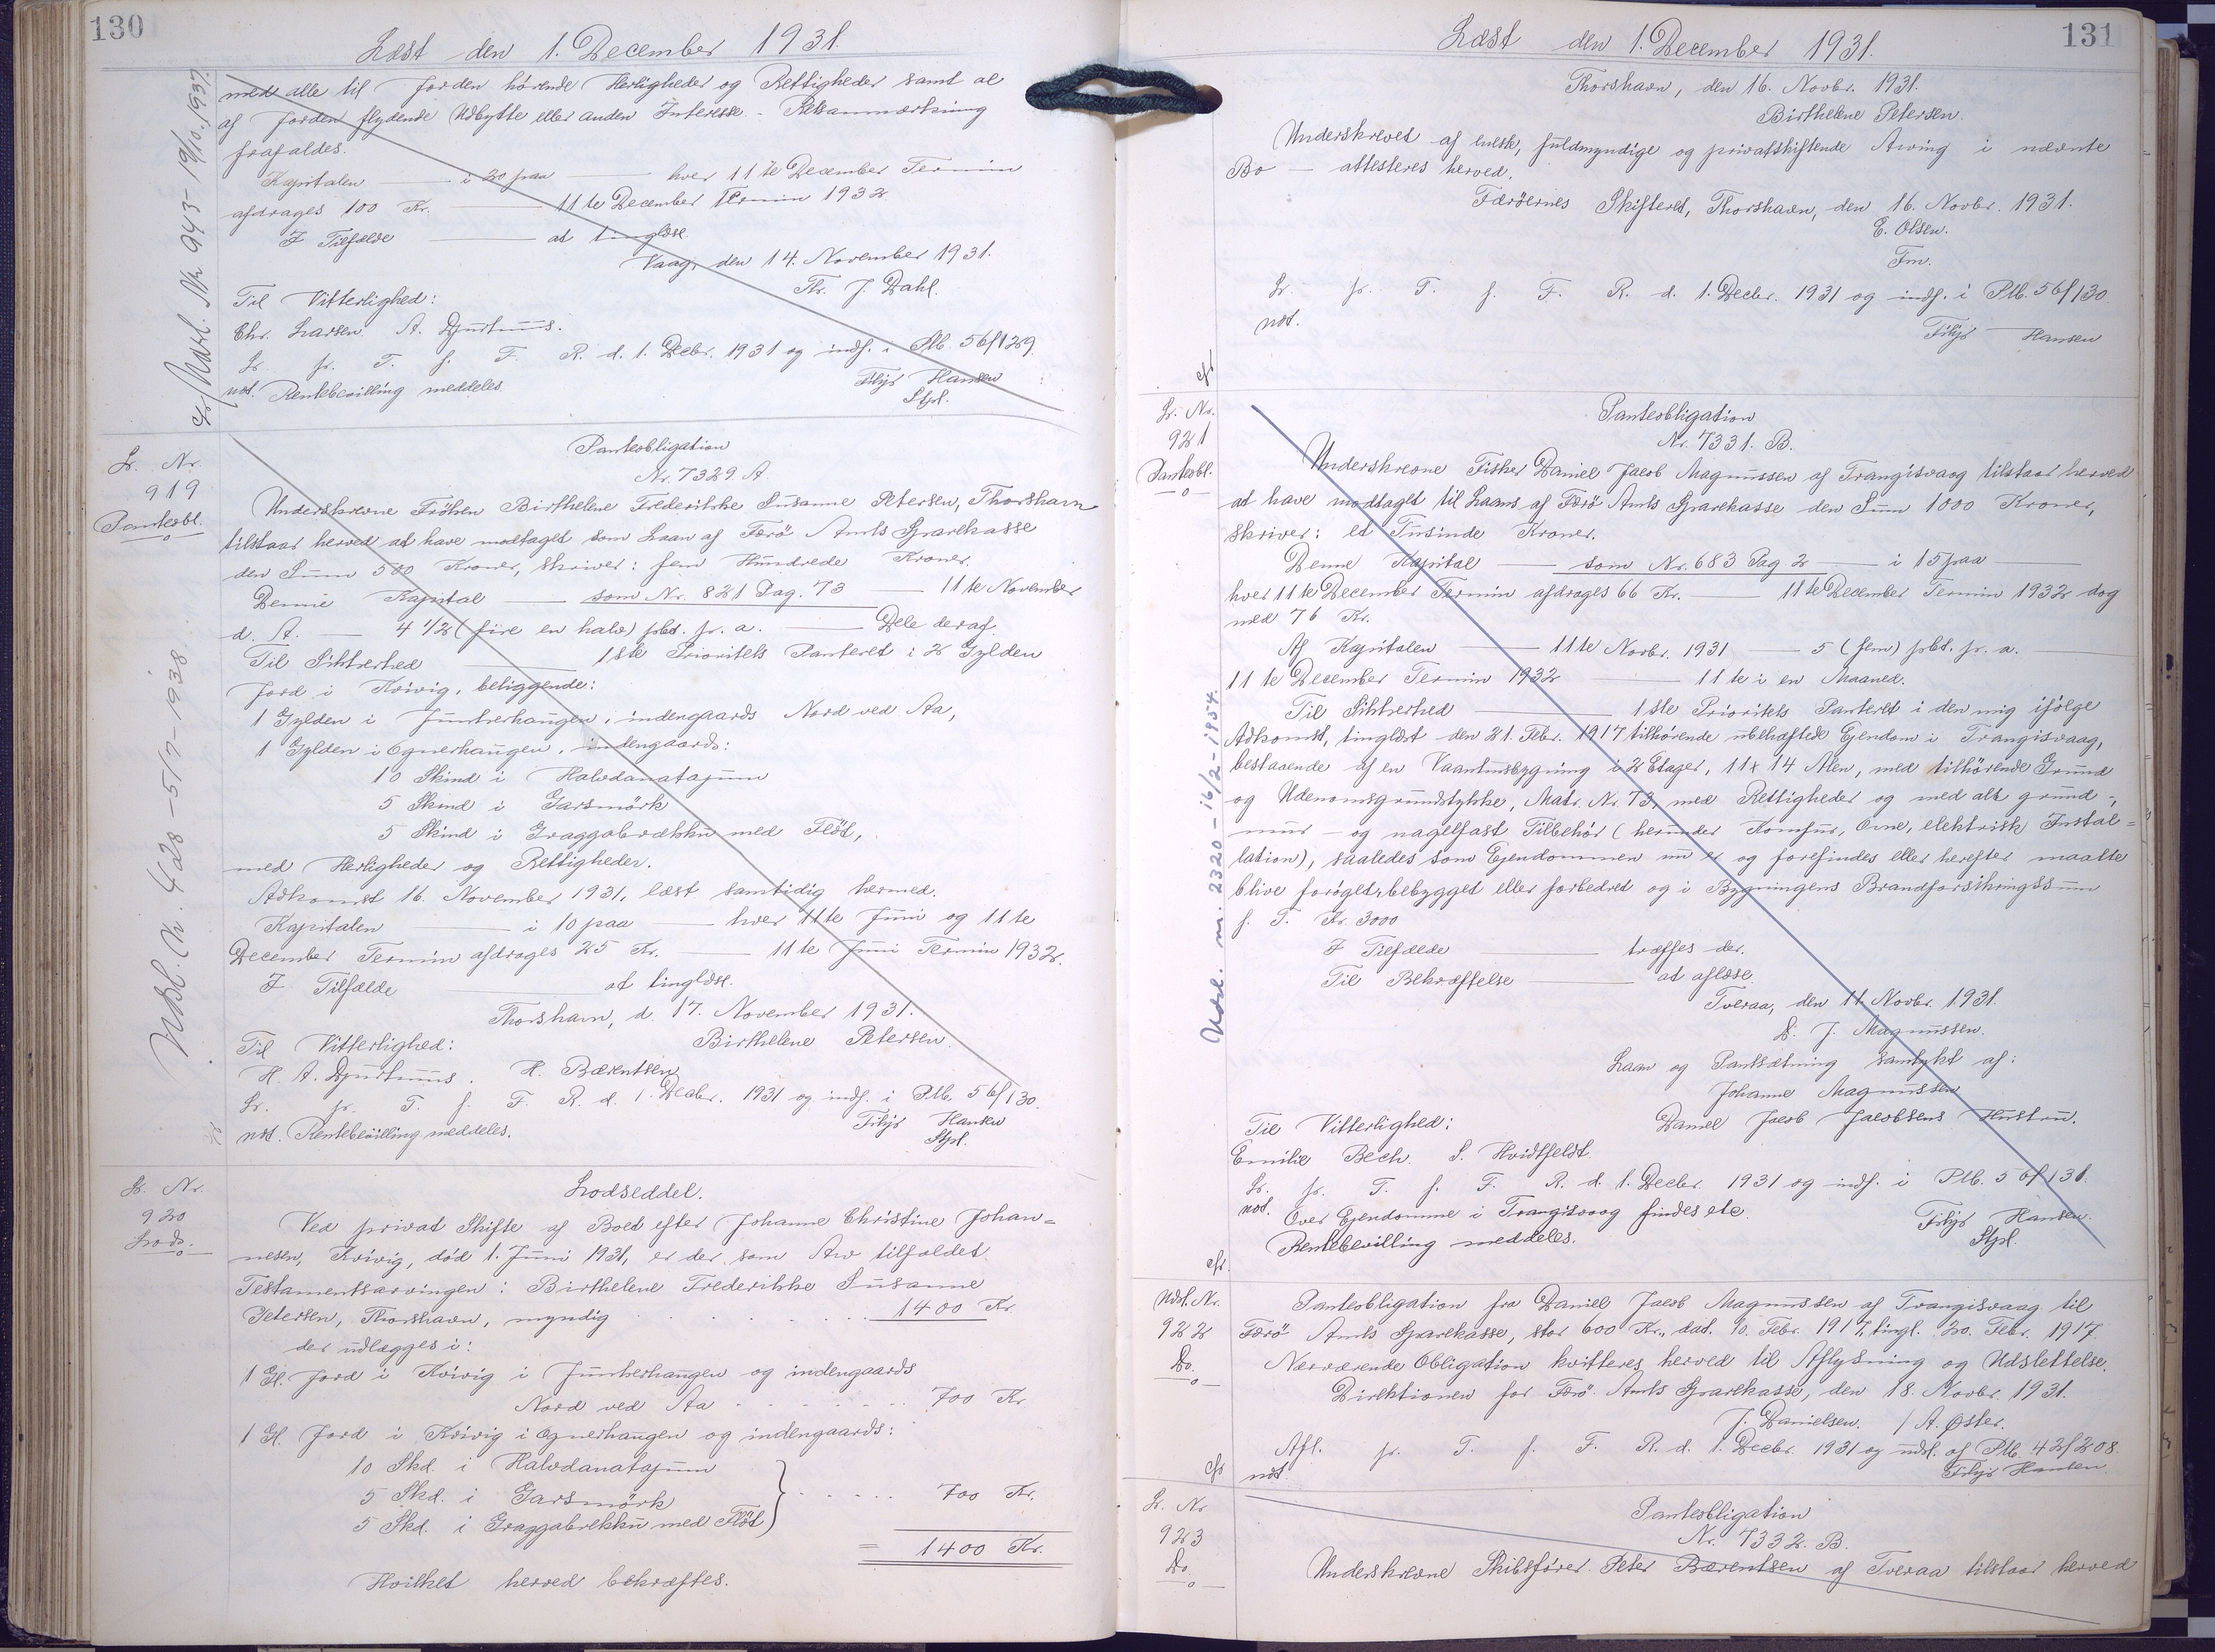 130
Læst den 1. December 1931.
med alle til Jorden hørende Herligheder og Rettigheder samt al
af Jorden flydende Udbytte eller anden Interesse. - Retsanmærkning
frafaldes.
Kapitalen — i 20 paa — hver 11te December Termin
afdrages 100 Kr. — 11te December Termin 1932
I Tilfælde — at tinglæse.
Vaag, den 14. November 1931.
Thr. J. Dahl.
Til Vitterlighed:
Chr. Larsen A. Djurhuus.
Lr. fr. T. f. F. R. d. 1. Decbr. 1931 og indf. i Plb. 56/129.
not. Rentebevilling meddeles.
Filip Hansen
Stpl.
Udsl. Nr 943 - 19/10. 1937.
Lr. Nr.
919
Pantobl.
Panteobligation
Nr. 7329 A
Underskrevne Frøken Birthelene Frederikke Susanne Petersen, Thorshavn
tilstaar herved at have modtaget som Laan af Færö Amts Sparekasse
den Sum 500 Kroner, skriver: fem Hundrede Kroner.
Denne Kapital — som Nr. 821 Pag. 73 — 11te November
d. A. — 4 1/2 (fire en halv) pbt. p. a. — Dele deraf.
Til Sikkerhed — 1ste Prioritets Panteret i 2 Gylden
Jord i Kvivig, beliggende:
1 Gylden i Junkerhaugen, indengaards Nord ved Aa,
1 Gylden i Ognerhaugen, indengaards:
10 Skind i Halvdanatajum
5 Skind i Garsmörk
5 Skind i Graggabrækku med Flöt,
med Herligheder og Rettigheder.
Adkomst 16. November 1931, læst samtidig hermed.
Kapitalen — i 10 paa — hver 11te Juni og 11te
December Termin afdrages 25 Kr. — 11te Juni Termin 1932.
I Tilfælde — at tinglæse.
Thorshavn, d. 17. November 1931.
Til Vitterlighed: Birthelene Petersen.
H. A. Djurhuus. H. Bærentsen
Lr. fr. T. f. F. R. d. 1. Decbr. 1931 og indf. i Plb. 56/130.
not. Rentebevilling meddeles.
Filip Hansen
Stpl.
Udsl. Nr. 428 - 5/7 - 1938.
Lr. Nr.
920
Lods.
Lodseddel.
Ved privat Skifte af Boet efter Johanne Christine Johan=
nesen, Kvivig, død 1. Juni 1931, er der som Arv tilfaldet
Testamentsarvingen: Birthelene Frederikke Susanne
Petersen, Thorshavn, myndig . . . . . 1400 Kr.
der udlægges i:
1 Gl. Jord i Kvivig i Junkerhaugen og indengaards
Nord ved Aa . . . . . 700 Kr.
1 Gl. Jord i Kvivig i Ognerhaugen og indengaards:
10 Skd. i Halvdanatajum
5 Skd. i Garsmörk . . . . . 700 Kr.
5 Skd. i Graggabrekku med Flöt
= 1400 Kr.
Hvilket herved bekræftes.
131
Læst den 1. December 1931.
Thorshavn, den 16. Novbr. 1931.
Birthelene Petersen.
Underskrevet af eneste, fuldmyndige og privatskiftende Arving i nævnte
Bo — attesteres herved.
Færöernes Skifteret, Thorshavn, den 16. Novbr. 1931.
E. Olsen.
Fm.
Lr. fr. T. f. F. R. d. 1. Decbr. 1931 og indf. i Plb. 56/130
not.
Filip Hansen
Lr. Nr.
921
Pantobl.
Panteobligation
Nr. 7331. B.
Underskrevne Fisker Daniel Jacob Magnussen af Trangisvaag tilstaar herved
at have modtaget til Laans af Færö Amts Sparekasse den Sum 1000 Kroner,
skriver: et Tusinde Kroner.
Denne Kapital — som Nr. 683 Pag 2 — i 15 paa —
hver 11te December Termin afdrages 66 Kr. — 11te December Termin 1932 dog
med 76 Kr.
Af Kapitalen — 11te Novbr. 1931 — 5 (fem) pbt. p. a. —
11te December Termin 1932 — 11te i en Maaned.
Til Sikkerhed — 1ste Prioritets Panteret i den mig ifølge
Adkomst, tinglæst den 21. Febr. 1917 tilhørende ubehæftede Ejendom i Trangisvaag,
bestaaende af en Vaaningsbygning i 2 Etager, 11 x 14 Alen, med tilhörende Grund
og Udenomsgrundstykke, Matr. Nr. 73, med Rettigheder og med alt grund-,
mur- og nagelfast Tilbehör (herunder Komfur, Ovne, elektrisk Instal=
lation), saaledes som Ejendommen nu er og forefindes eller herefter maatte
blive forøget, bebygget eller forbedret og i Bygningens Brandforsikringssum
f. T. Kr. 3000
I Tilfælde — træffes der.
Til Bekræftelse — at aflæse.
Tveraa, den 11. Novbr. 1931.
D. J. Magnussen.
Laan og Pantsætning samtykt af:
Johanne Magnussen
Til Vitterlighed: Daniel Jacob Jacobsens Hustru.
Emilie Bech. S. Hvidtfeldt.
Lr. fr. T. f. F. R. d. 1. Decbr. 1931 og indf. i Plb. 56/131.
not. Over Ejendomme i Trangisvaag findes etc.
Rentebevilling meddeles.
Filip Hansen.
Stpl.
Udsl. nr. 2320 - 16/2 - 1954.
Udsl. Nr.
922
Do.
Panteobligation fra Daniel Jacob Magnussen af Trangisvaag til
Færö Amts Sparekasse, stor 600 Kr., dat. 10. Febr. 1917, tingl. 20. Febr. 1917.
Nærværende Obligation kvitteres herved til Aflysning og Udslettelse.
Direktionen for Færö Amts Sparekasse, den 18. Novbr. 1931.
J. Danielsen. / A. Øster.
Afl. fr. T. f. F. R. d. 1. Decbr. 1931 og udsl. af Plb. 42/208.
not
Filip Hansen.
Lr. Nr
923
Do.
Panteobligation
Nr. 7332. B.
Underskrevne Skibsfører Peter Bærentsen af Tveraa tilstaar herved